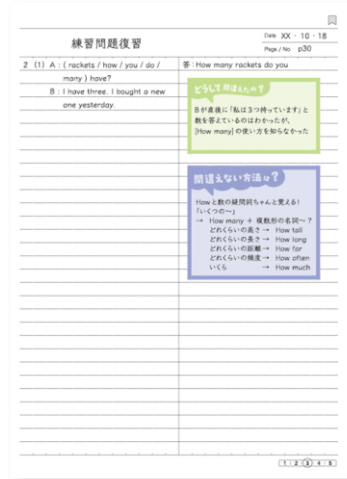 Date XX・10・18
練習問題復習
Page / No. p30
2 (1) A : ( rackets / how / you / do /
many ) have?
B : I have three. I bought a new
one yesterday.
答 : How many rackets do you
どうして間違えたの?
Bが直後に「私は3つ持っています」と
数を答えているのはわかったが、
[How many]の使い方を知らなかった
間違えない方法は?
Howと数の疑問詞ちゃんと覚える!
「いくつの〜」
→ How many + 複数形の名詞〜?
どれくらいの高さ→ How tall
どれくらいの長さ→ How long
どれくらいの距離→ How far
どれくらいの頻度→ How often
いくら → How much
1 2 3 4 5